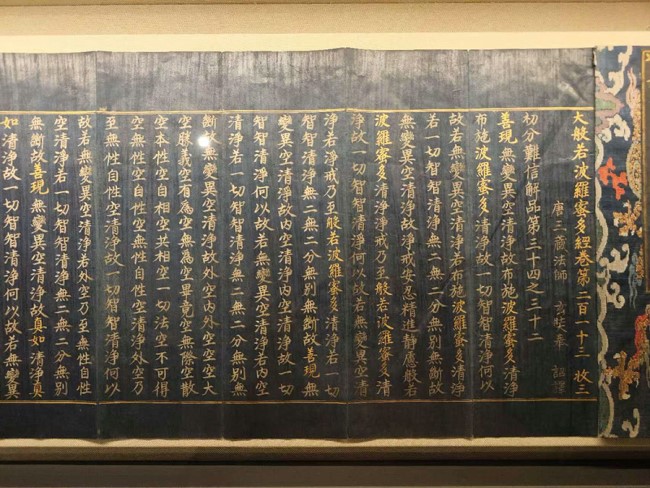 大般若波羅蜜多經卷第二百一十三 枚三
唐三藏法師 玄奘奉 詔譯
初分難信解品第三十四之三十二
善現無變異空清淨故布施波羅蜜多清淨
布施波羅蜜多清淨故一切智智清淨何以
故若無變異空清淨若布施波羅蜜多清淨
若一切智智清淨無二無二分無別無斷故
無變異空清淨故淨戒安忍精進靜慮般若
波羅蜜多清淨淨戒乃至般若波羅蜜多清
淨故一切智智清淨何以故若無變異空清
淨若淨戒乃至般若波羅蜜多清淨若一切
智智清淨無二無二分無別無斷故善現無
變異空清淨故內空清淨內空清淨故一切
智智清淨何以故若無變異空清淨若內空
清淨若一切智智清淨無二無二分無別無
斷故無變異空清淨故外空內外空空空大
空勝義空有為空無為空畢竟空無際空散
空本性空自相空共相空一切法空不可得
空無性空自性空無性自性空清淨外空乃
至無性自性空清淨故一切智智清淨何以
故若無變異空清淨若外空乃至無性自性
空清淨若一切智智清淨無二無二分無別
無斷故善現無變異空清淨故真如清淨真
如清淨故一切智智清淨何以故若無變異